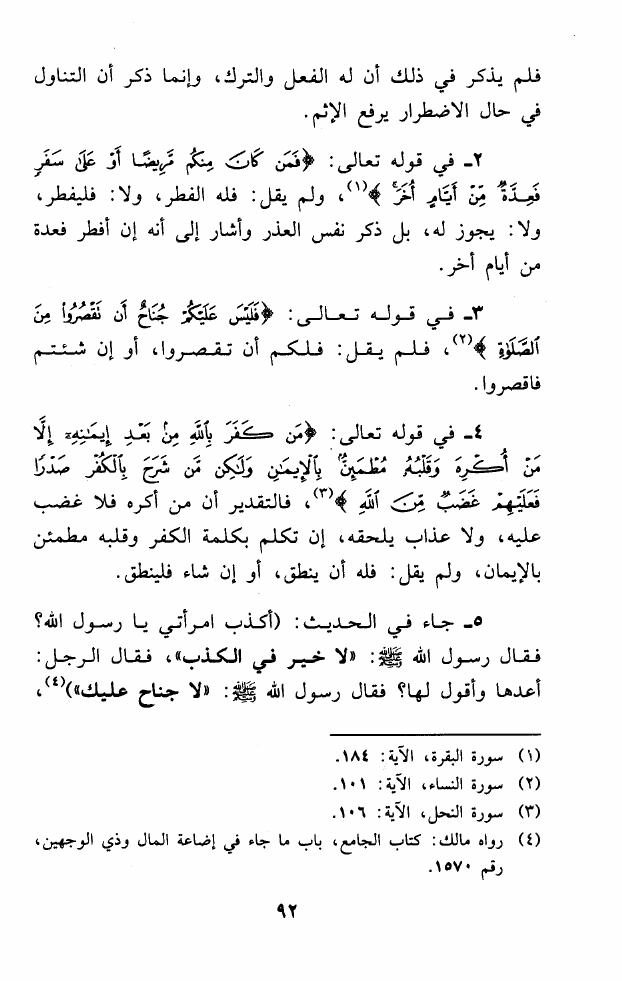 فلم يذكر في ذلك أن له الفعل والترك، وإنما ذكر أن التناول
في حال الاضطرار يرفع الإثم.
٢ـ في قوله تعالى: ﴿فَمَن كَانَ مِنكُم مَّرِيضًا أَوْ عَلَىٰ سَفَرٍ
فَعِدَّةٌ مِّنْ أَيَّامٍ أُخَرَ﴾(١)، ولم يقل: فله الفطر، ولا: فليفطر،
ولا: يجوز له، بل ذكر نفس العذر وأشار إلى أنه إن أفطر فعدة
من أيام أخر.
٣ـ في قوله تعالى: ﴿فَلَيْسَ عَلَيْكُمْ جُنَاحٌ أَن نَقْصُرُوا۟ مِنَ
ٱلصَّلَوٰةِ﴾(٢)، فلم يقل: فلكم أن تقصروا، أو إن شئتم
فاقصروا.
٤ـ في قوله تعالى: ﴿مَن كَفَرَ بِٱللَّهِ مِنۢ بَعْدِ إِيمَـٰنِهِۦٓ إِلَّا
مَنْ أُكْرِهَ وَقَلْبُهُۥ مُطْمَئِنٌّۢ بِٱلْإِيمَـٰنِ وَلَـٰكِن مَّن شَرَحَ بِٱلْكُفْرِ صَدْرًا
فَعَلَيْهِمْ غَضَبٌ مِّنَ ٱللَّهِ﴾(٣)، فالتقدير أن من أكره فلا غضب
عليه، ولا عذاب يلحقه، إن تكلم بكلمة الكفر وقلبه مطمئن
بالإيمان، ولم يقل: فله أن ينطق، أو إن شاء فلينطق.
٥ـ جاء في الحديث: (أكذب امرأتي يا رسول الله؟
فقال رسول الله ﷺ: «لا خير في الكذب»، فقال الرجل:
أعدها وأقول لها؟ فقال رسول الله ﷺ: «لا جناح عليك»)(٤)،
(١) سورة البقرة، الآية: ١٨٤.
(٢) سورة النساء، الآية: ١٠١.
(٣) سورة النحل، الآية: ١٠٦.
(٤) رواه مالك: كتاب الجامع، باب ما جاء في إضاعة المال وذي الوجهين،
رقم ١٥٧٠.
٩٢